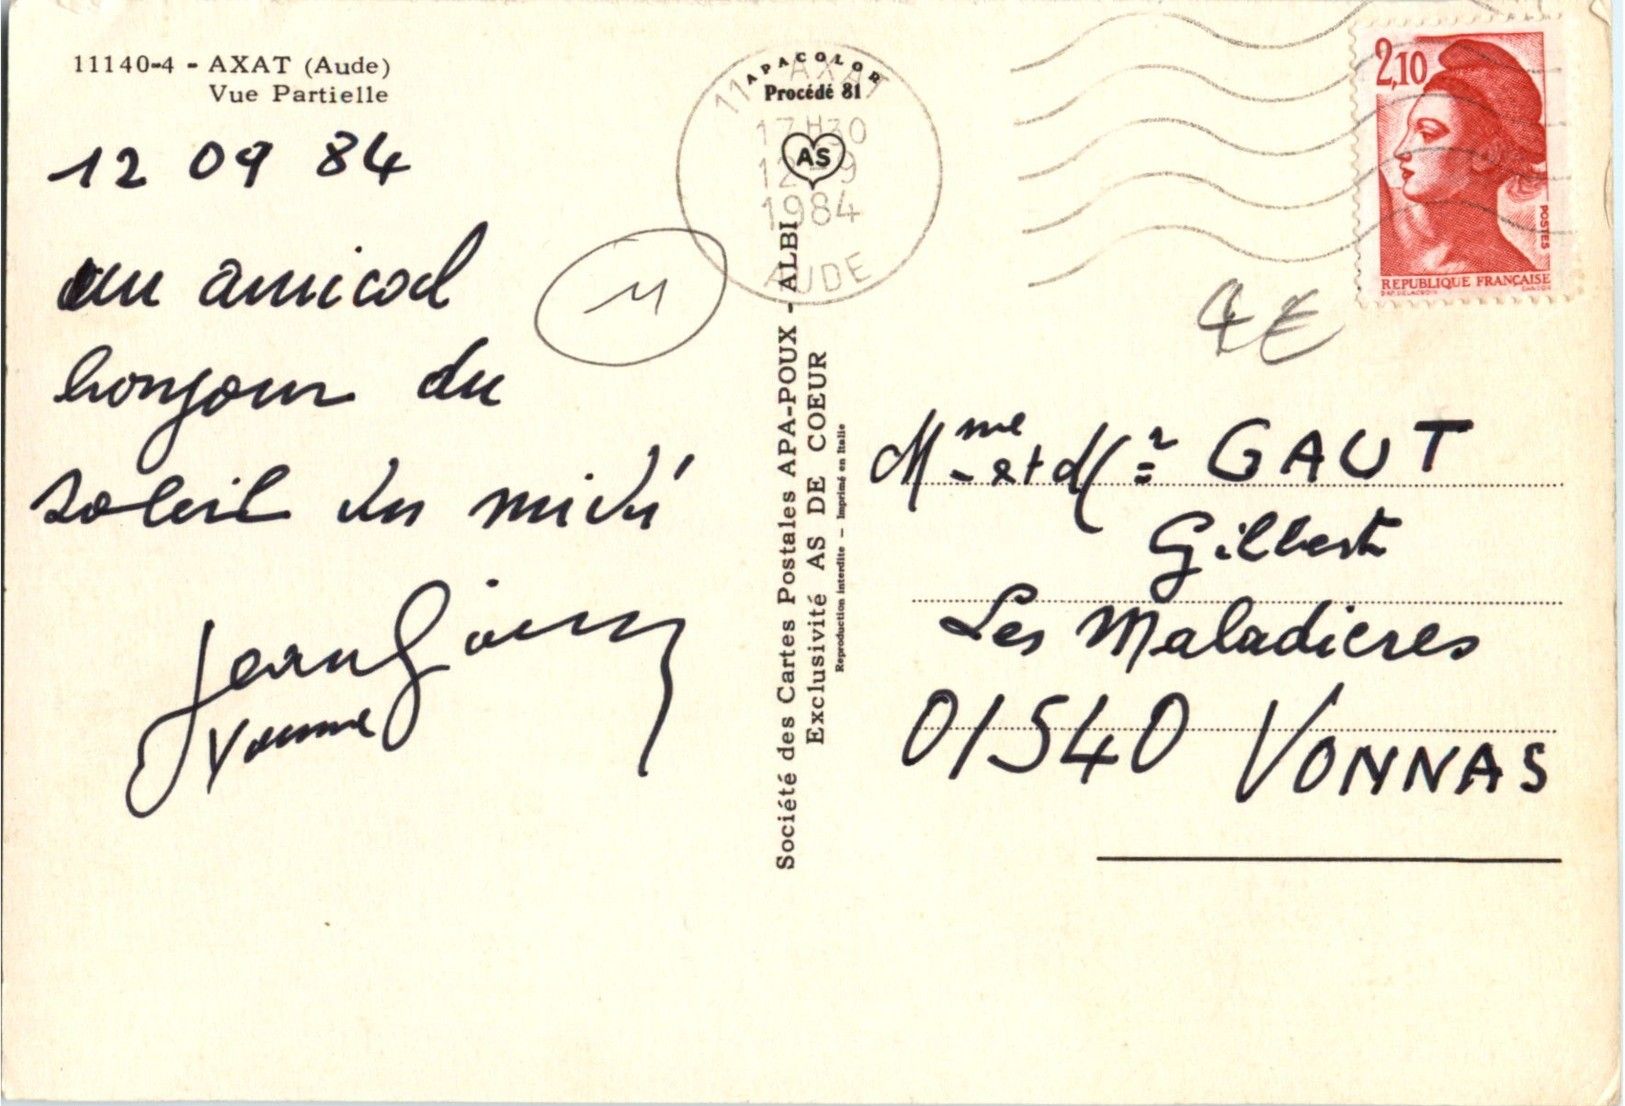 11140-4 - AXAT (Aude)
Vue Partielle
12 09 84
un amical
bonjour du
soleil du midi
Jean
Yvonne
11
APACOLOR
Procédé 81
AS
11 AXAT
17H30
12-9
1984
AUDE
Société des Cartes Postales APA-POUX - ALBI
Exclusivité AS DE COEUR
Reproduction interdite - Imprimé en Italie
2,10
POSTES
REPUBLIQUE FRANÇAISE
4€
Mme et Mr GAUT
Gilbert
Les Maladieres
01540 VONNAS